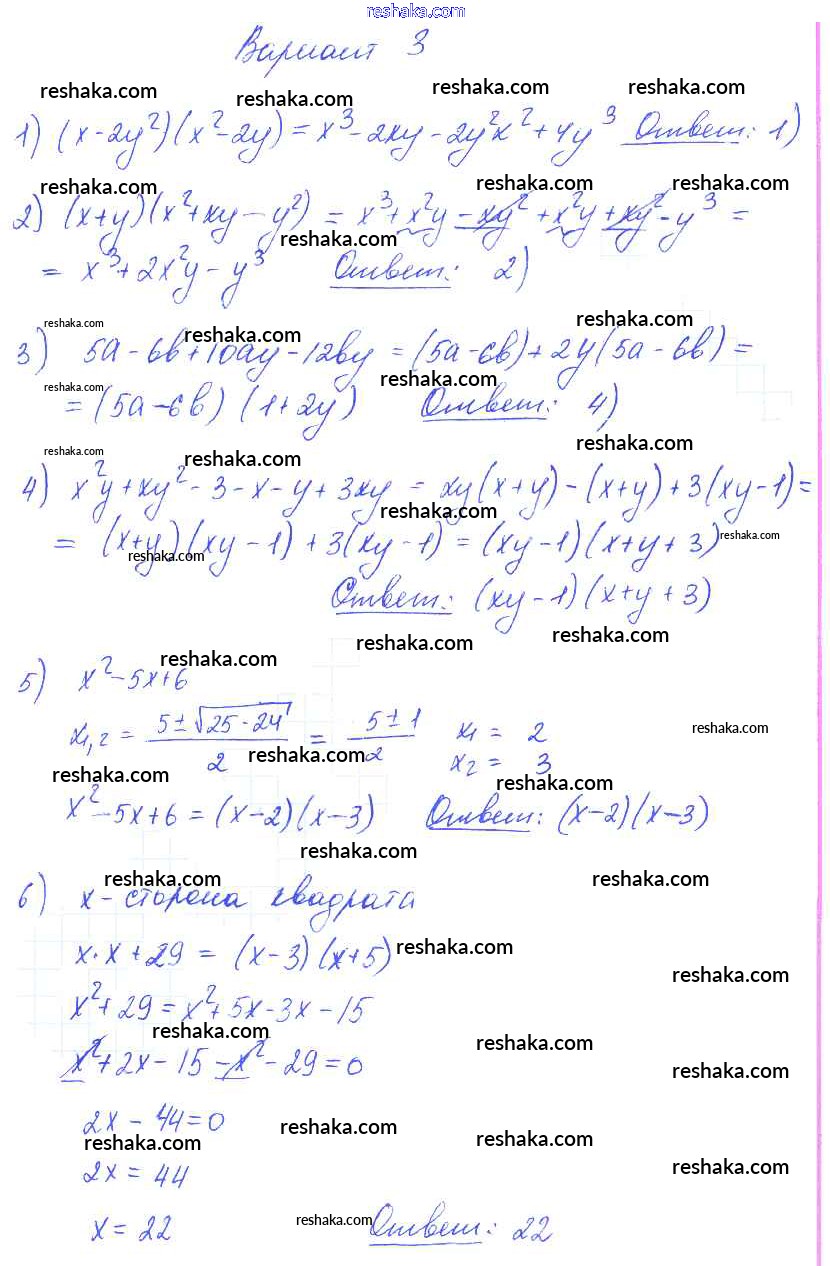 reshaka.com
Вариант 3
reshaka.com reshaka.com reshaka.com reshaka.com
1) (x-2y²)(x²-2y) = x³-2xy-2y²x²+4y³ Ответ: 1)
reshaka.com reshaka.com reshaka.com
2) (x+y)(x²+xy-y²) = x³+x²y-xy²+x²y+xy²-y³ =
reshaka.com
= x³+2x²y-y³ Ответ: 2)
reshaka.com reshaka.com reshaka.com
3) 5a-6b+10ay-12by = (5a-6b)+2y(5a-6b) =
reshaka.com reshaka.com
= (5a-6b)(1+2y) Ответ: 4)
reshaka.com reshaka.com reshaka.com
4) x²y+xy²-3-x-y+3xy = xy(x+y)-(x+y)+3(xy-1) =
reshaka.com
= (x+y)(xy-1)+3(xy-1) = (xy-1)(x+y+3) reshaka.com
reshaka.com
Ответ: (xy-1)(x+y+3)
reshaka.com reshaka.com reshaka.com
5) x²-5x+6
x₁,₂ = (5±√25-24)/2 = (5±1)/2 x₁ = 2 reshaka.com
x₂ = 3
reshaka.com reshaka.com reshaka.com
x²-5x+6 = (x-2)(x-3) Ответ: (x-2)(x-3)
reshaka.com
reshaka.com reshaka.com
6) x-сторона квадрата
x·x+29 = (x-3)(x+5) reshaka.com
reshaka.com
x²+29 = x²+5x-3x-15
reshaka.com reshaka.com
x²+2x-15-x²-29=0 reshaka.com
2x-44=0 reshaka.com
reshaka.com reshaka.com
2x = 44 reshaka.com
x = 22 reshaka.com Ответ: 22